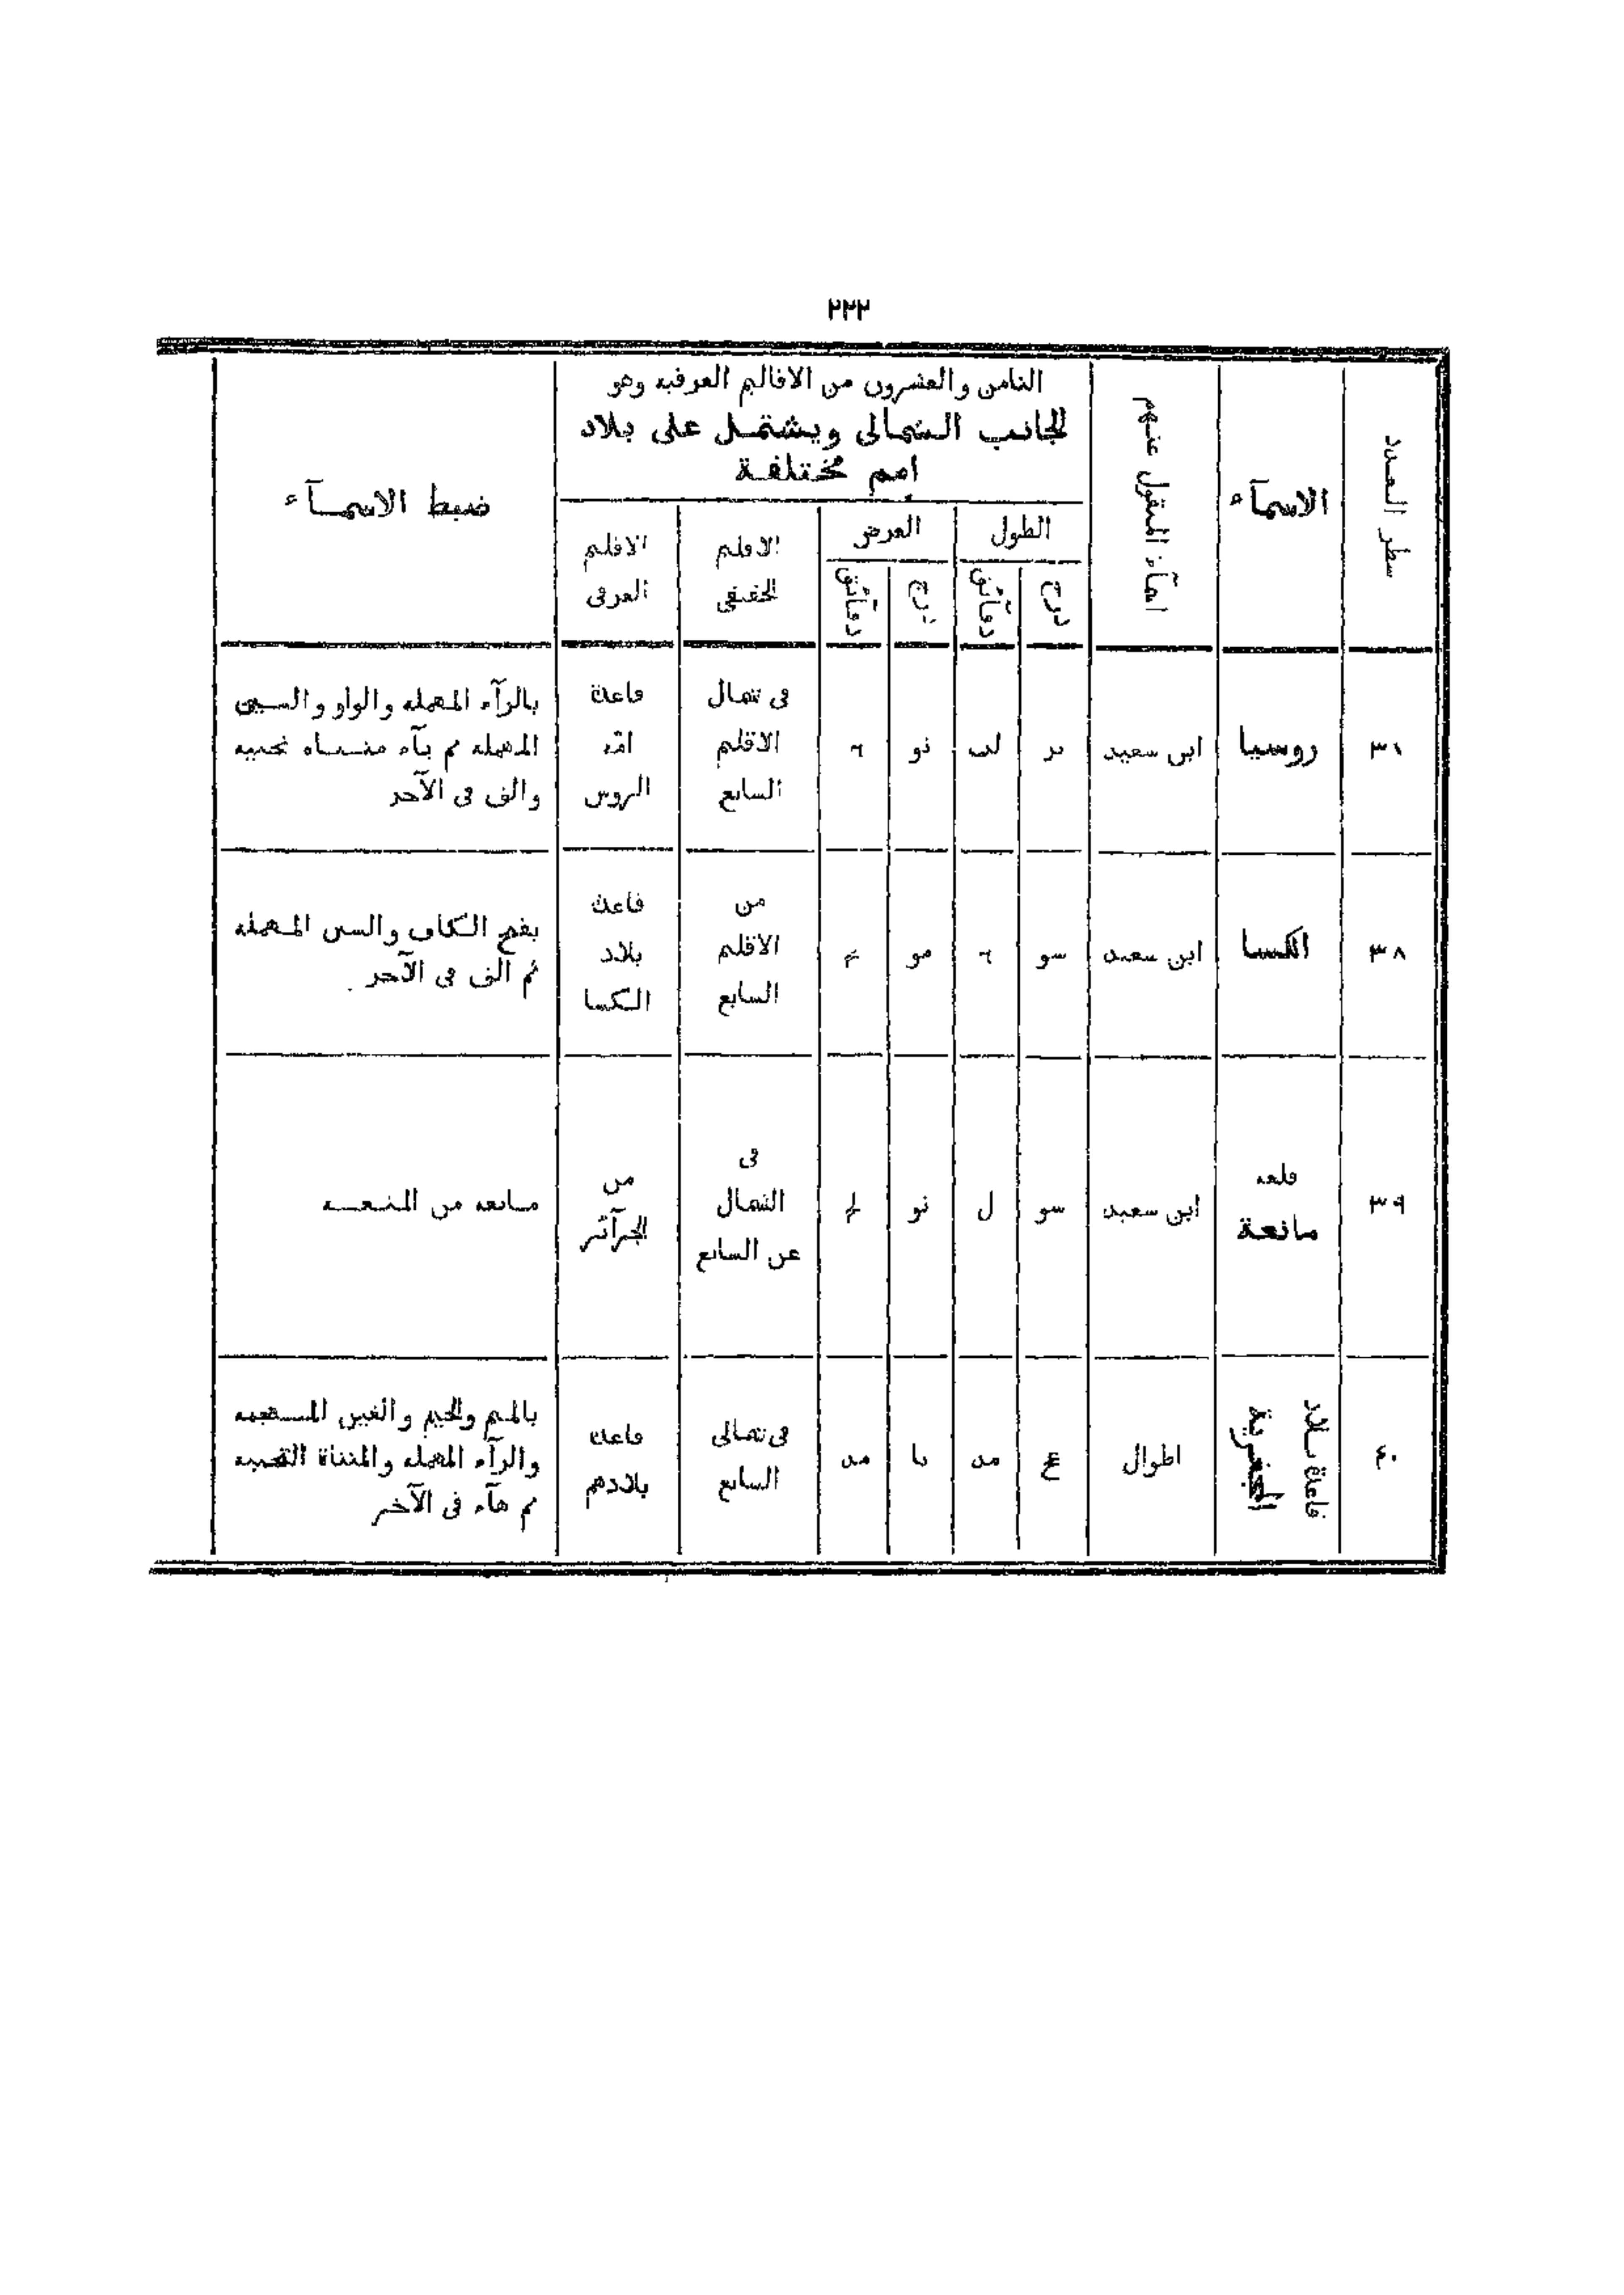 ٢٢٢
سطر العدد
الاسمآء
اسمآء المنقول عنهم
الثامن والعشرون من الاقاليم العرفيه وهو
الجانب الشمالى ويشتمل على بلاد
امم مختلفة
ضبط الاسمآء
الطول
العرض
الاقليم
الحقيقى
الاقليم
العرفى
درج
دقآئق
درج
دقآئق
روسيا
ابن سعيد
لب
نو
فى شمال
الاقليم
السابع
قاعدة
امّة
الروس
بالرآء المهمله والواو والسين
المهمله ثم يآء مثناه تحتيه
والف فى الآخر
٣٨
الكسا
ابن سعيد
سو
مو
من
الاقليم
السابع
قاعدة
بلاد
الكسا
بفتح الكاف والسين المهمله
ثم الف فى الآخر
٣٩
قلعه
مانعة
ابن سعيد
سو
ل
نو
فى
الشمال
عن السابع
من
الجزآئر
مانعه من المنعه
٤٠
قاعدة بلاد
المجغرية
اطوال
فى شمالى
السابع
قاعدة
بلادهم
بالميم والجيم والغين المعجمه
والرآء المهمله والمثناة التحتيه
ثم هآء فى الآخر